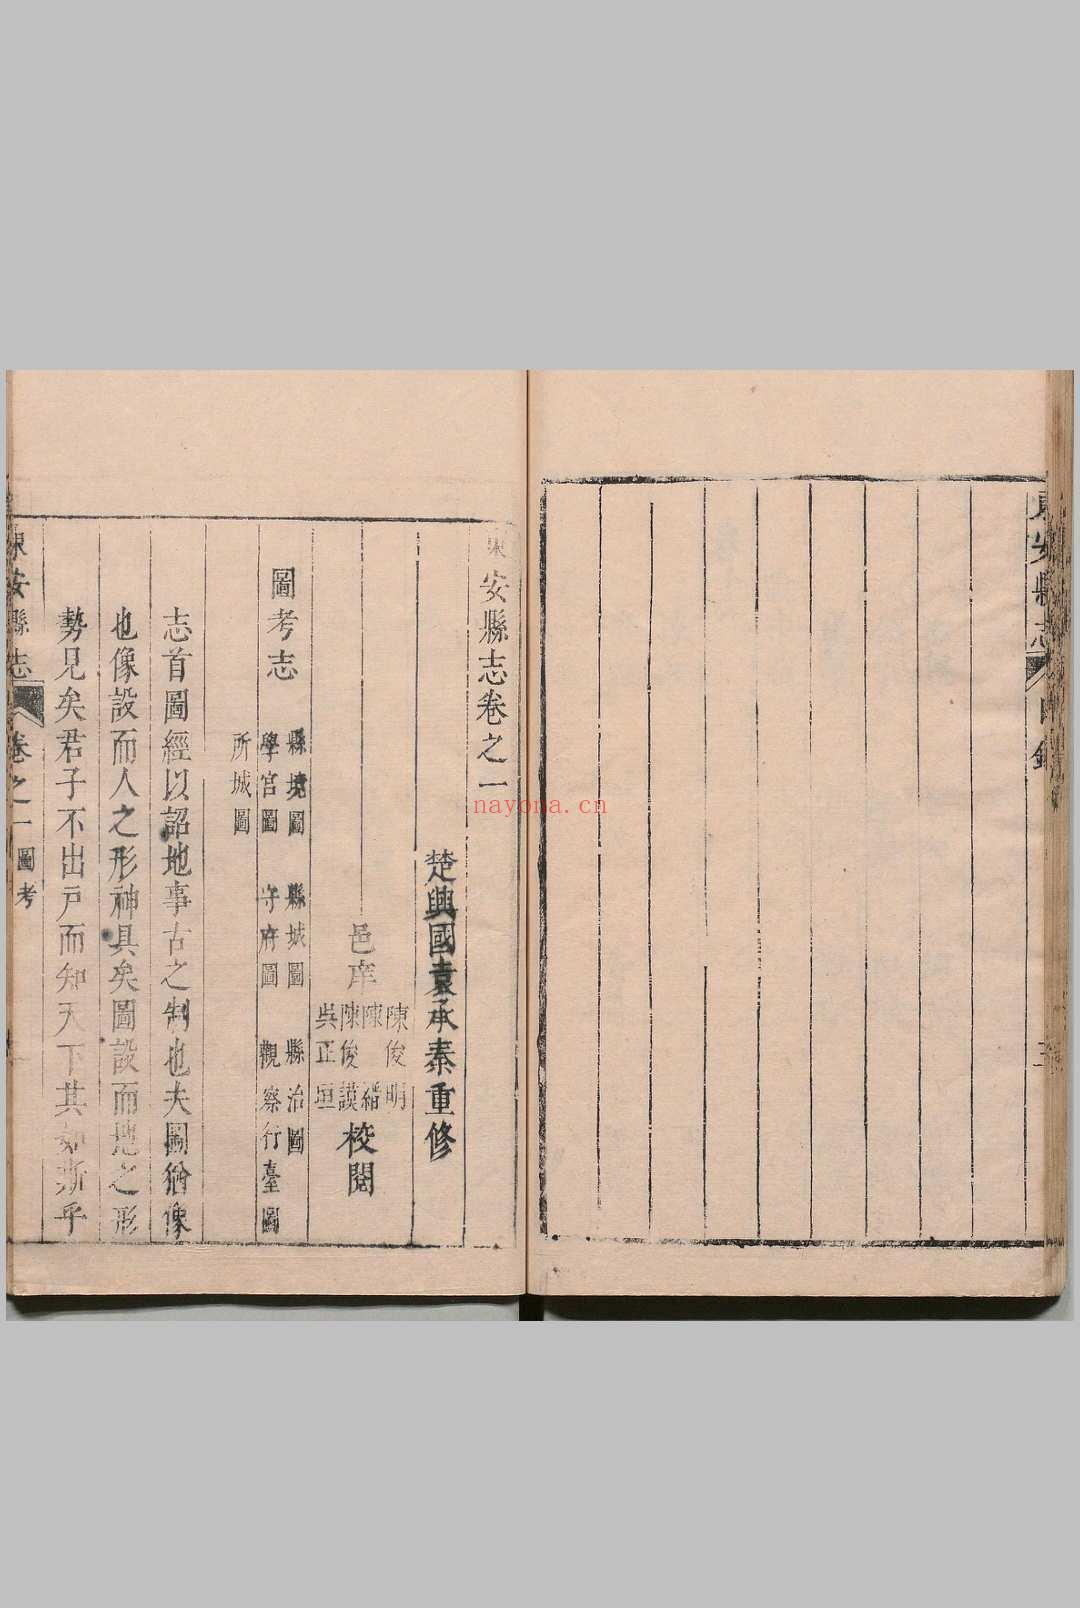 東安縣志
目錄
東安縣志卷之一
楚興國袁承秦重修
邑庠
陳俊明
陳縉
陳俊謨
吳正垣
校閱
圖考志
縣境圖 縣城圖 縣治圖
學宮圖 守府圖 觀察行臺圖
所城圖
志首圖經以詔地事古之制也夫圖猶像
也像設而人之形神具矣圖設而地之形
勢見矣君子不出戶而知天下其如斯乎
東安縣志
卷之一
圖考
nayona.cn